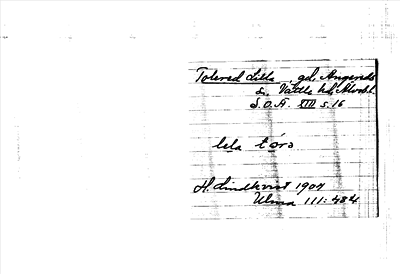 Tolered Lilla, gd, Angereds
s. Vättle hd, Älvsbl.
S.O.A. XIII s. 16
lıla tórə
H. Lindkvist 1907
Ulma 111:484